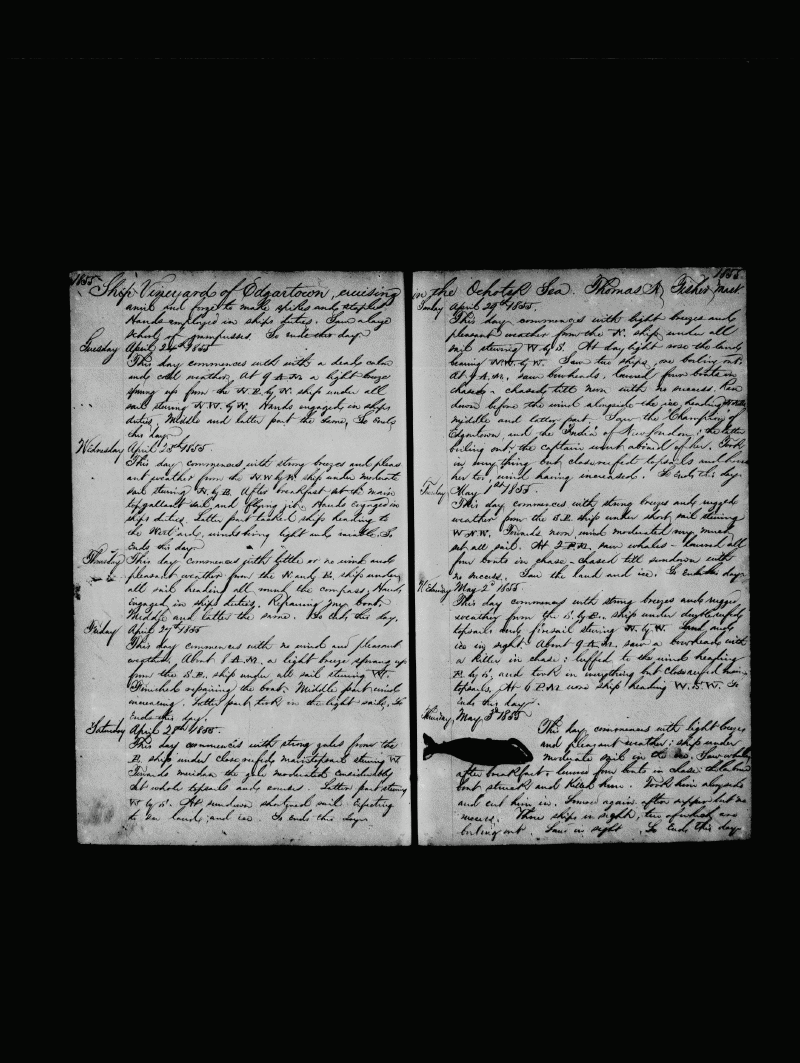 1855
Ship Vineyard of Edgartown, cruising
anvil and forge to make spikes and staples
Hands employed in ships duties. Saw a large
school of grampusses. So ends this day
Tuesday April 24th 1855
This day commences with with a dead calm
and cold weather, At 9 A.M. a light breeze
sprung up from the N.E. by N. ship under all
sail stearing N.W. by W. Hands engaged in ships
duties, Middle and latter part the same, So Ends
this day
Wednesday April 25th 1855.
This day commences with strong breezes and pleas
ant weather from the N.W by N. ship under moderate
sail stearing N. by E. After breakfast set the main
topgallant sail and flying jib. Hands engaged in
ships duties. Latter part tacked ship heading to
the West ard, winds being light and So
Ends this day
Thursday This day commences with little or no wind and
pleasant weather from the N. and E. ship under
all sail heading all round the compass, Hands
engaged in ships duties. Repairing boat.
Middle and latter the same. So Ends this day.
Friday April 27th 1855
This day commences with no wind and pleasant
weather. About 1 A.M. a light breeze sprang up
from the S.E. ship under all sail stearing W.
Finished repairing the boat. Middle part wind
increasing. Latter part took in the light sails, So
Ends this day.
Saturday April 28th 1855.
This day commences with strong gales from the
E. ship under close reefed maintopsail stearing W.
Towards meridian the gale moderated considerably
set whole topsails and courses. Latter part stearing
W by S. At sundown shortened sail. Expecting
to see land and ice. So ends this day
1855
in the Ochotsk Sea. Thomas R Fisher Mast
Sunday April 29th 1855.
This day commences with light breezes and
pleasant weather from the N. ship under all
sail stearing W by S. At daylight rose the land
bearing N.W. by W. Saw two ships, one boiling out.
At 9 A.M., saw bowheads. Lowered four boats in
chase, chased till noon with no success. Ran
down before the wind alongside the ice, heading
middle and latter part. Saw the Champion of
Edgartown, and the "India" of New London; the latter
boiling out, the captain went aboard of her. Took
in everything but closereefed topsails and
her to, wind having increased. So Ends this day.
Tuesday May 1st 1855.
This day commences with strong breezes and rugged
weather from the S.E. ship under short sail stearing
W.N.W. Towards noon wind moderated very much
set all sail. At 2 P.M. saw whales - lowered all
four boats in chase - chased till sundown with
no success. Saw the land and ice. So Ends this day
Wednesday May 2d 1855.
This day commences with strong breezes and rugged
weather from the S. by E. ship under doublereefed
topsails and foresail stearing N. by W. Land and
ice in sight. About 9 A.M. saw a bowhead with
a killer in chase: luffed to the wind heading
E. by S. and took in everything but closereefed main
topsails. At 6 P.M. wore ship heading W.S.W. So
Ends this day
Thursday May 3d 1855
This day commences with light breezes
and pleasant weather: ship under
moderate sail in the ice. Saw whales
after breakfast - lowered four boats in chase: the larboard
boat struck and killed him. Took him alongside
and cut him in. Lowered again after supper but no
success. Three ships in sight, two of which are
boiling out. Land in sight. So Ends this day